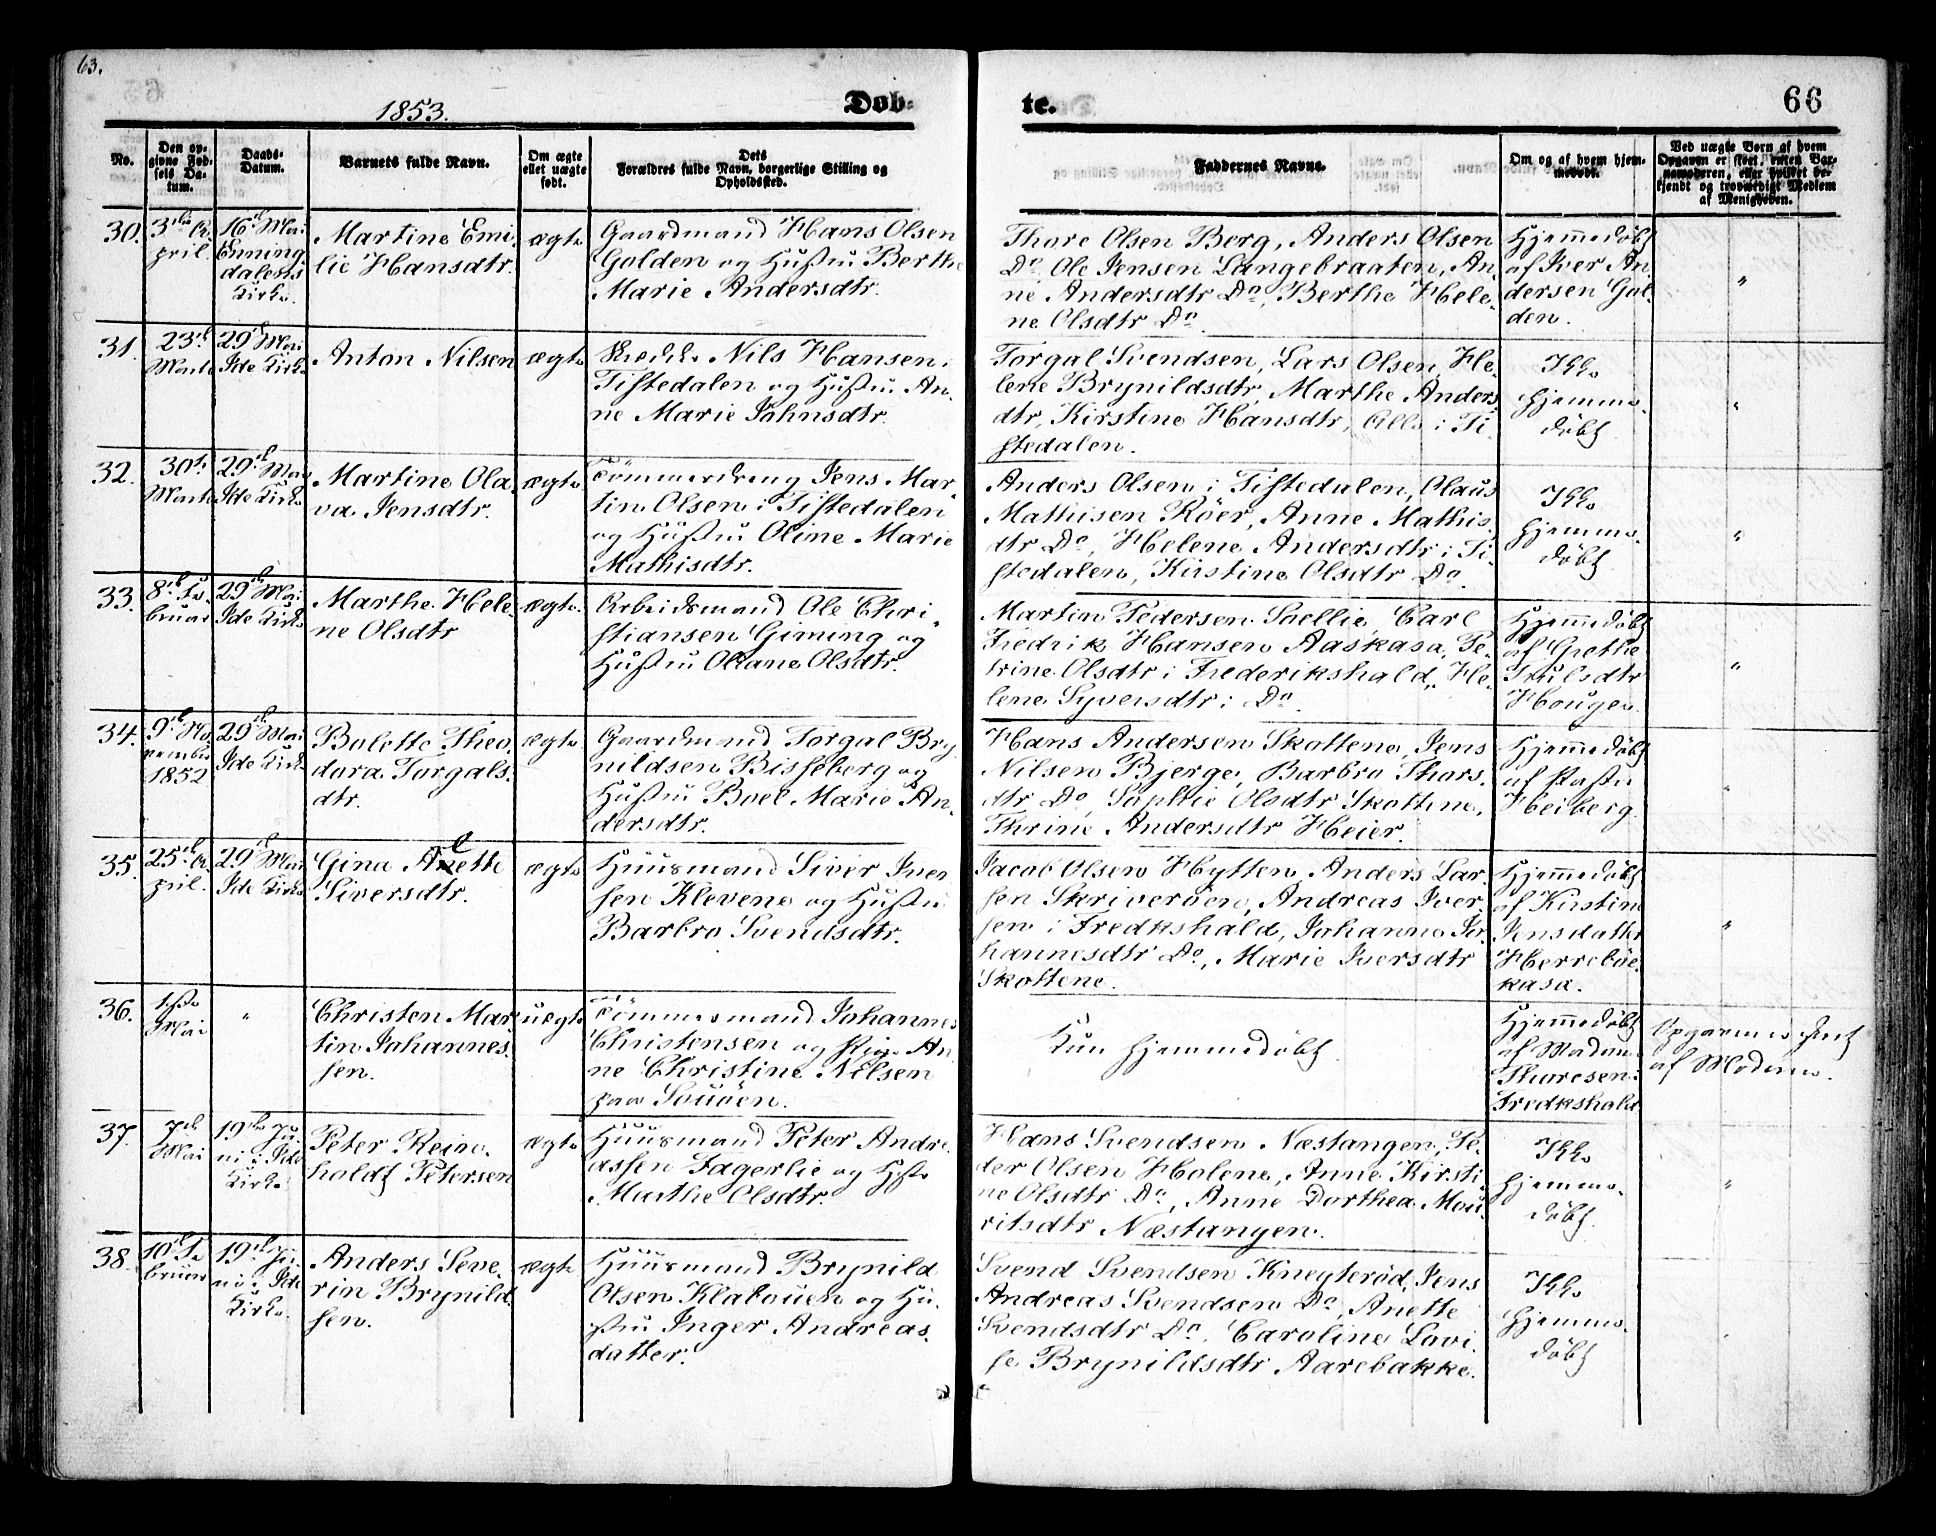 63.
1853.
Døb-
te.
66
No.
Den op-
givne Fød-
sels Da-
tum.
Daabs-
Datum.
Barnets fulde Navn.
Om ægte
ellet uægte
født.
Dets
Forældres fulde Navn, borgerlige Stilling og
Opholdssted.
Faddernes Navne.
Om og af hvem hjem-
medøbt.
Ved uægte Børn af hvem
Opgaven er skeet, enten Bar-
namoderen, eller hvilket be-
kjendt og troværdigt Medlem
af Menigheden.
30.
3die A-
pril.
16de Mai
Enning-
dalens
Kirke.
Martine Emi-
lie Hansdtr.
ægte
Gaardmand Hans Olsen
Golden og Hustru Berthe
Marie Andersdtr.
Thore Olsen Berg, Anders Olsen
Do, Ole Jensen Langebraaten, An-
ne Andersdtr Do, Berthe Hele-
ne Olsdtr Do.
Hjemmedøbt
af Iver An-
dersen Gol-
den.
"
31.
23de
Marts
29de Mai
Ide Kirke
Anton Nilsen
ægte
Nils Hansen,
Tistedalen og Hustru An-
ne Marie Johnsdtr.
Torgal Svendsen, Lars Olsen, He-
lene Brynildsdtr, Marthe Anders-
dtr, Kirstine Hansdtr, Alle i Ti-
stedalen.
Ikke
hjemme-
døbt.
"
32.
30te
Marts
29de Mai
Ide Kirke
Martine Ola-
va Jensdtr.
ægte
Tømmerdreng Jens Mar-
tin Olsen i Tistedalen
og Hustru Oline Marie
Mathisdtr.
Anders Olsen i Tistedalen, Olaus
Mathisen Röer, Anne Mathis-
dtr Do, Helene Andersdtr i Ti-
stedalen, Kirstine Olsdtr Do.
Ikke
hjemme-
døbt.
"
33.
8de Fe-
bruar
29de Mai
Ide Kirke
Marthe Hele-
ne Olsdtr
ægte.
Arbeidsmand Ole Chri-
stiansen Giming og
Hustru Oleane Olsdtr.
Martin Pedersen Sollie, Carl
Fredrik Hansen Aaskasa, Pe-
trine Olsdtr i Frederikshald, He-
lene Syversdtr i Do.
Hjemmedøbt
af Grethe
Trulsdtr
Hougen.
"
34.
9de No-
vember
1852
29de Mai
Ide Kirke
Bolette Theo-
dora Torgals-
dtr.
ægte
Gaardmand Torgal Bry-
nildsen Bisseberg og
Hustru Boel Marie An-
dersdtr.
Hans Andersen Skottene, Jens
Nilsen Bjerge, Barbro Thors-
dtr Do, Sophie Olsdtr Skottene,
Thrine Andersdtr Heier.
Hjemmedøbt
af
Heiberg.
"
35.
25de A-
pril.
29de Mai
Ide Kirke
Gina Alette
Siversdtr.
ægte
Huusmand Siver Iver-
sen Klevene og Hustru
Barbro Svendsdtr.
Jacob Olsen Hytten, Anders Lar-
sen Skriverøen, Andreas Iver-
sen i Fredkshald, Johanne Jo-
hannesdtr Do, Marie Iversdtr
Skottene.
Hjemmedøbt
af Kirstine
Jensdatter
Herreböe-
kasa.
"
36.
1ste
Mai
"
Christen Mar-
tin Johannes-
sen.
uægte
Tømmermand Johannes
Christensen og Pige An-
ne Christine Nilsen
paa Souöen.
Kun hjemmedøbt.
Hjemmedøbt
af Madam
Thoresen i
Fredkshald.
Opgaven er skeet
af Moderen.
37.
7de
Mai
19de Ju-
ni i Ide
Kirke
Peter Rein-
holdt Petersen
ægte
Huusmand Peter Andre-
assen Fagerlie og Hstr
Marthe Olsdtr.
Hans Svendsen Næstangen, Pe-
der Olsen Holene, Anne Kirsti-
ne Olsdtr Do, Anne Dorthea Mou-
ritsdtr Næstangen.
Ikke
hjemme-
døbt.
"
38.
10de Fe-
bruar
19de Ju-
ni i Ide
Kirke.
Anders Seve-
rin Brynild-
sen.
ægte
Huusmand Brynild
Olsen Klatouen og Hu-
stru Inger Andreas-
datter.
Svend Svendsen Kneyteröd, Jens
Andreas Svendsen Do, Anette
Svendsdtr Do, Caroline Lovi-
se Brynildsdtr Aarebakke.
Ikke
hjemme-
døbt
"